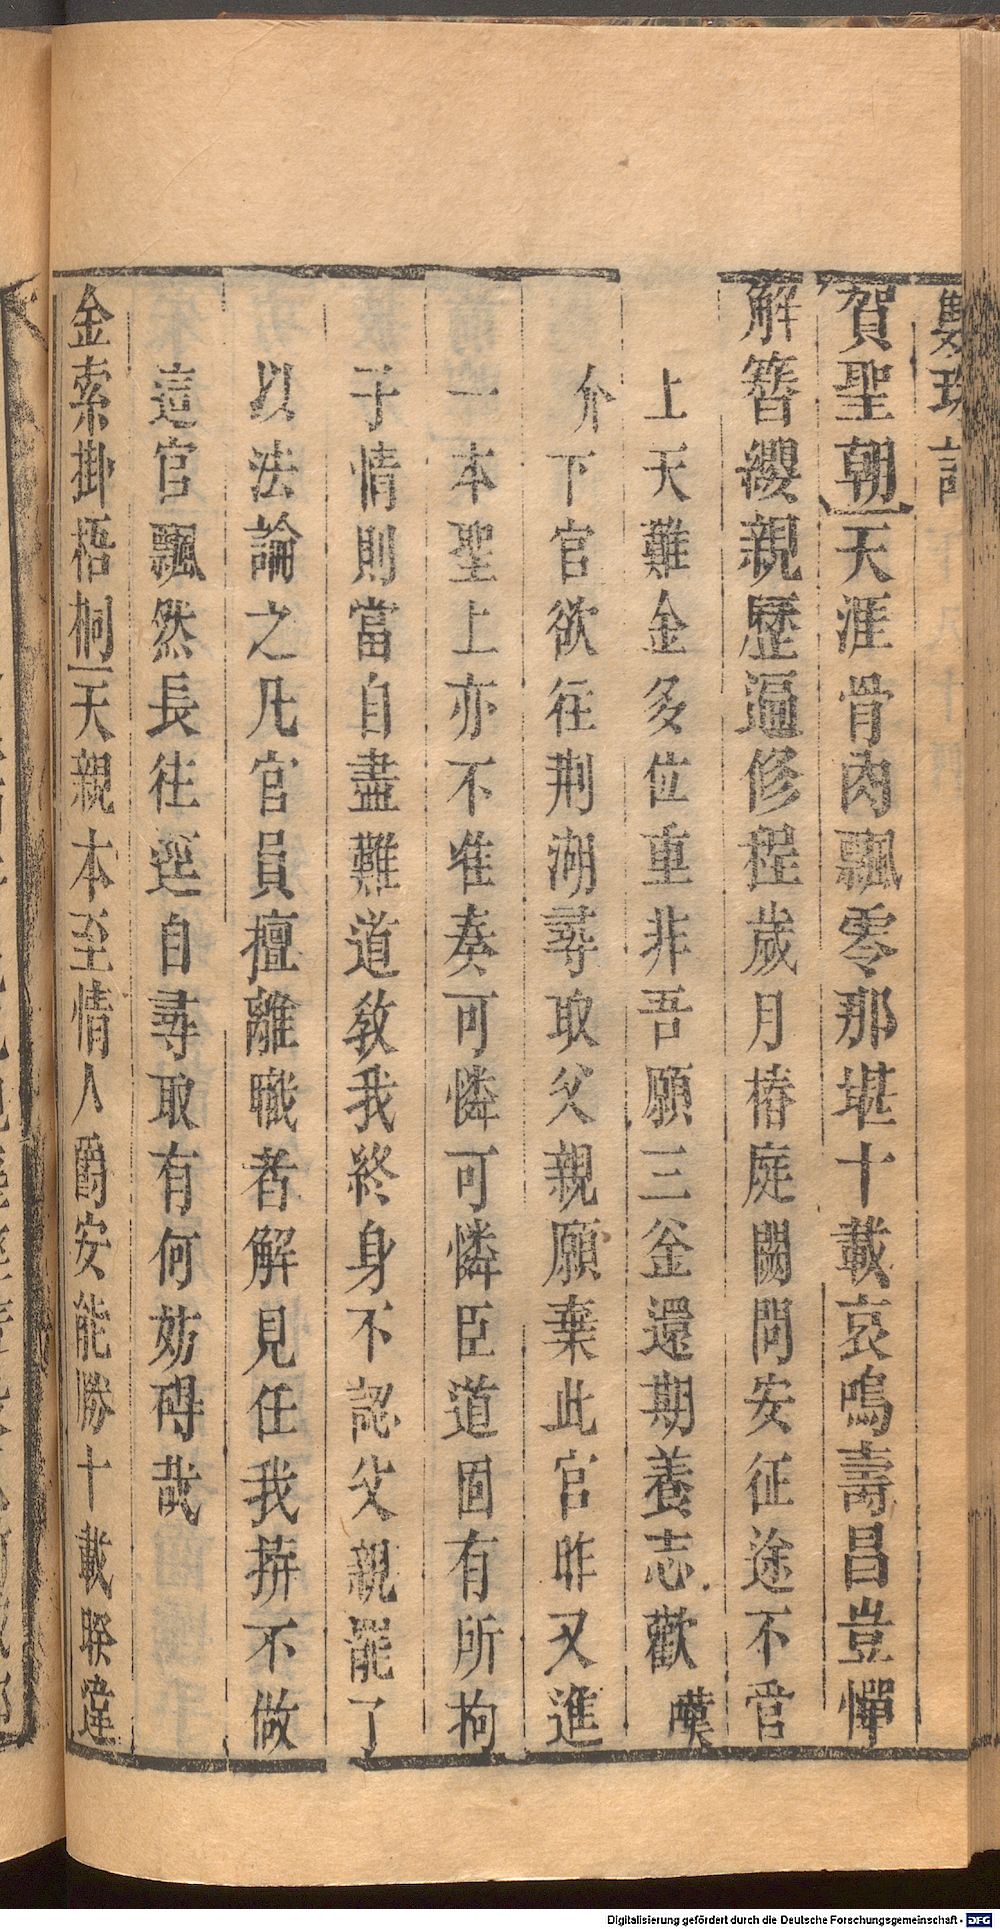 雙珠記
賀聖朝天涯骨肉飄零那堪十載哀鳴壽昌豈憚
解簪纓親歷遍修程歲月椿庭闕問安征途不管
上天難金多位重非吾願三釜還期養志歡 嘆
介下官欲往荆湖尋取父親願棄此官昨又進
一本聖上亦不准奏可憐可憐臣道固有所拘
子情則當自盡難道教我終身不認父親罷了
以法論之凡官員擅離職者解見任我拚不做
這官飄然長往逕自尋取有何妨碍哉
金索掛梧桐天親本至情人爵安能勝十載睽違
Digitalisierung gefördert durch die Deutsche Forschungsgemeinschaft - DFG